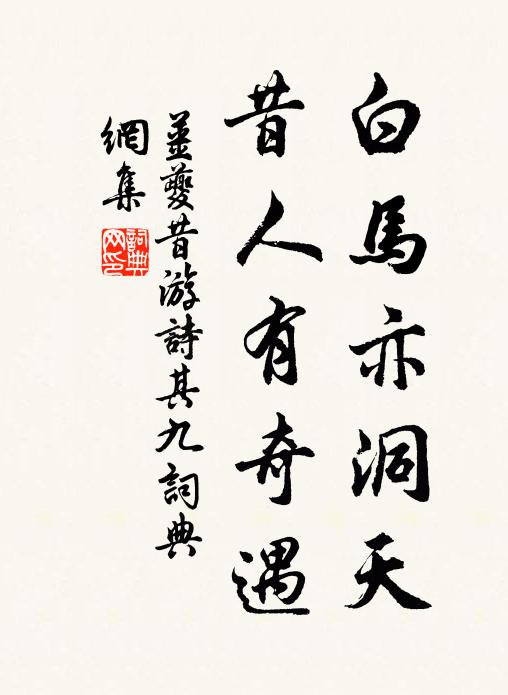 白馬亦洞天
昔人有奇遇
薑夔昔游詩其九詞典
網集
詞典网印